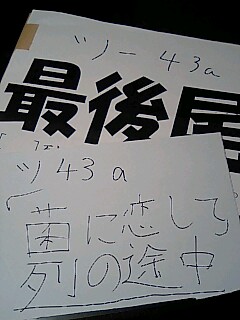 ツー43a
最後尾
ツ43a
「菌に恋して
列の途中